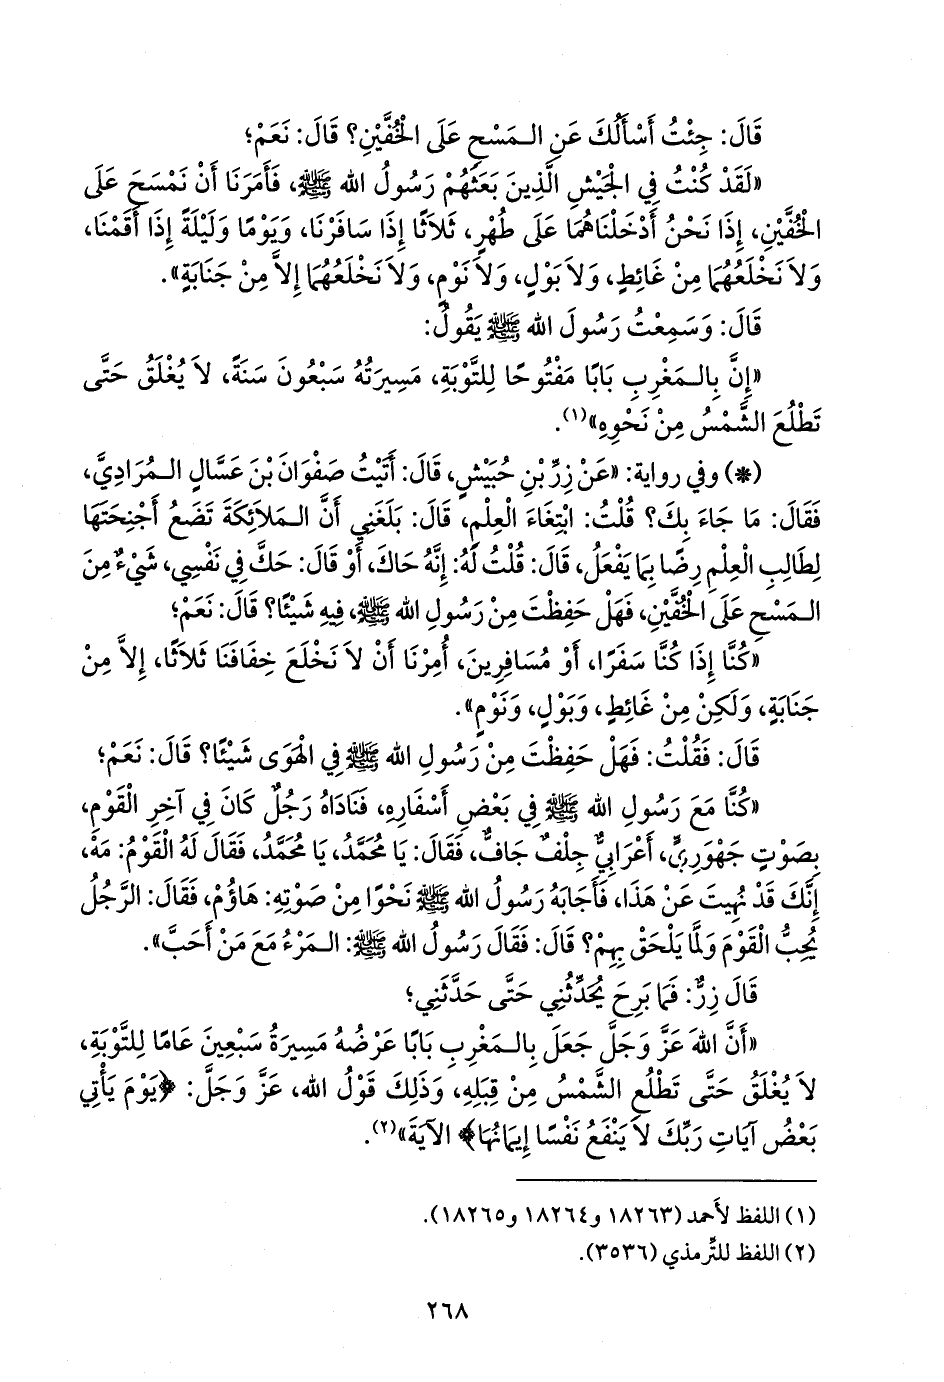 قَالَ: جِئْتُ أَسْأَلُكَ عَنِ الـمَسْحِ عَلَى الْخُفَّيْنِ؟ قَالَ: نَعَمْ؛
«لَقَدْ كُنْتُ فِي الْجَيْشِ الَّذِينَ بَعَثَهُمْ رَسُولُ الله ﷺ، فَأَمَرَنَا أَنْ نَمْسَحَ عَلَى
الْخُفَّيْنِ، إِذَا نَحْنُ أَدْخَلْنَاهُمَا عَلَى طُهْرٍ، ثَلَاثًا إِذَا سَافَرْنَا، وَيَوْمًا وَلَيْلَةً إِذَا أَقَمْنَا،
وَلاَ نَخْلَعُهُمَا مِنْ غَائِطٍ، وَلاَ بَوْلٍ، وَلاَ نَوْمٍ، وَلاَ نَخْلَعُهُمَا إِلاَّ مِنْ جَنَابَةٍ».
قَالَ: وَسَمِعْتُ رَسُولَ الله ﷺ يَقُولُ:
«إِنَّ بِالـمَغْرِبِ بَابًا مَفْتُوحًا لِلتَّوْبَةِ، مَسِيرَتُهُ سَبْعُونَ سَنَةً، لاَ يُغْلَقُ حَتَّى
تَطْلُعَ الشَّمْسُ مِنْ نَحْوِهِ»(١).
(*) وفي رواية: «عَنْ زِرِّ بْنِ حُبَيْشٍ، قَالَ: أَتَيْتُ صَفْوَانَ بْنَ عَسَّالٍ الـمُرَادِيَّ،
فَقَالَ: مَا جَاءَ بِكَ؟ قُلْتُ: ابْتِغَاءَ الْعِلْمِ، قَالَ: بَلَغَنِي أَنَّ الـمَلاَئِكَةَ تَضَعُ أَجْنِحَتَهَا
لِطَالِبِ الْعِلْمِ رِضًا بِمَا يَفْعَلُ، قَالَ: قُلْتُ لَهُ: إِنَّهُ حَاكَ، أَوْ قَالَ: حَكَّ فِي نَفْسِي، شَيْءٌ مِنَ
الـمَسْحِ عَلَى الْخُفَّيْنِ، فَهَلْ حَفِظْتَ مِنْ رَسُولِ الله ﷺ، فِيهِ شَيْئًا؟ قَالَ: نَعَمْ؛
«كُنَّا إِذَا كُنَّا سَفَرًا، أَوْ مُسَافِرِينَ، أُمِرْنَا أَنْ لاَ نَخْلَعَ خِفَافَنَا ثَلاَثًا، إِلاَّ مِنْ
جَنَابَةٍ، وَلَكِنْ مِنْ غَائِطٍ، وَبَوْلٍ، وَنَوْمٍ».
قَالَ: فَقُلْتُ: فَهَلْ حَفِظْتَ مِنْ رَسُولِ الله ﷺ فِي الْهَوَى شَيْئًا؟ قَالَ: نَعَمْ؛
«كُنَّا مَعَ رَسُولِ الله ﷺ فِي بَعْضِ أَسْفَارِهِ، فَنَادَاهُ رَجُلٌ كَانَ فِي آخِرِ الْقَوْمِ،
بِصَوْتٍ جَهْوَرِيٍّ، أَعْرَابِيٌّ جِلْفٌ جَافٌّ، فَقَالَ: يَا مُحَمَّدُ، يَا مُحَمَّدُ، فَقَالَ لَهُ الْقَوْمُ: مَهْ،
إِنَّكَ قَدْ نُهِيتَ عَنْ هَذَا، فَأَجَابَهُ رَسُولُ الله ﷺ نَحْوًا مِنْ صَوْتِهِ: هَاؤُمْ، فَقَالَ: الرَّجُلُ
يُحِبُّ الْقَوْمَ وَلَمَّا يَلْحَقْ بِهِمْ؟ قَالَ: فَقَالَ رَسُولُ الله ﷺ: الـمَرْءُ مَعَ مَنْ أَحَبَّ».
قَالَ زِرٌّ: فَمَا بَرِحَ يُحَدِّثُنِي حَتَّى حَدَّثَنِي؛
«أَنَّ اللهَ عَزَّ وَجَلَّ جَعَلَ بِالـمَغْرِبِ بَابًا عَرْضُهُ مَسِيرَةُ سَبْعِينَ عَامًا لِلتَّوْبَةِ،
لاَ يُغْلَقُ حَتَّى تَطْلُعِ الشَّمْسُ مِنْ قِبَلِهِ، وَذَلِكَ قَوْلُ الله، عَزَّ وَجَلَّ: ﴿يَوْمَ يَأْتِي
بَعْضُ آيَاتِ رَبِّكَ لاَ يَنْفَعُ نَفْسًا إِيمَانُهَا﴾ الآيَةَ»(٢).
(١) اللفظ لأحمد (١٨٢٦٣ و١٨٢٦٤ و١٨٢٦٥).
(٢) اللفظ للتِّرمذي (٣٥٣٦).
٢٦٨